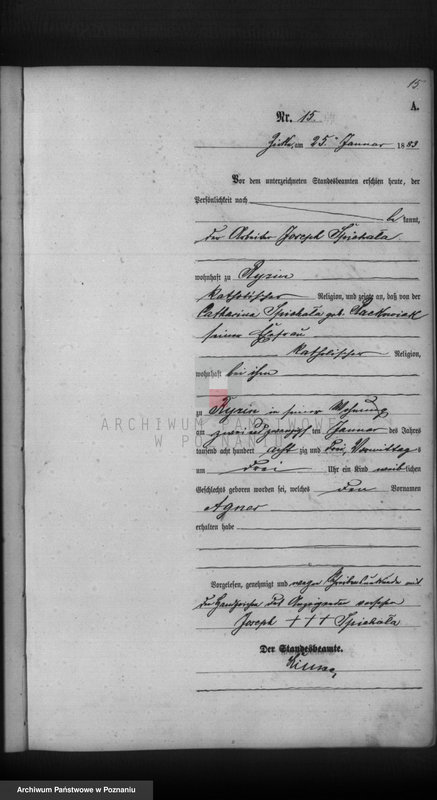 15
A.
Nr. 15.
Zirke, am 25ten Januar 1883
Vor dem unterzeichneten Standesbeamten erschien heute, der
Persönlichkeit nach
be kannt,
der Arbeiter Joseph Spichala
wohnhaft zu Ryzin
katholischer Religion, und zeigte an, daß von der
Catharina Spichala geb. Packowiak
seiner Ehefrau
katholischer Religion,
wohnhaft bei ihm
zu Ryzin in seiner Wohnung
am zwei und zwanzigsten Januar des Jahres
tausend acht hundert achtzig und drei, Vormittags
um drei Uhr ein Kind weiblichen
Geschlechts geboren worden sei, welches den Vornamen
Agnes
erhalten habe
Vorgelesen, genehmigt und wegen Schreibensunkunde mit
den Handzeichen des Anzeigenden versehen
Joseph +++ Spichala
Der Standesbeamte.
ARCHIWUM PAŃSTWOWE
W POZNANIU
Archiwum Państwowe w Poznaniu